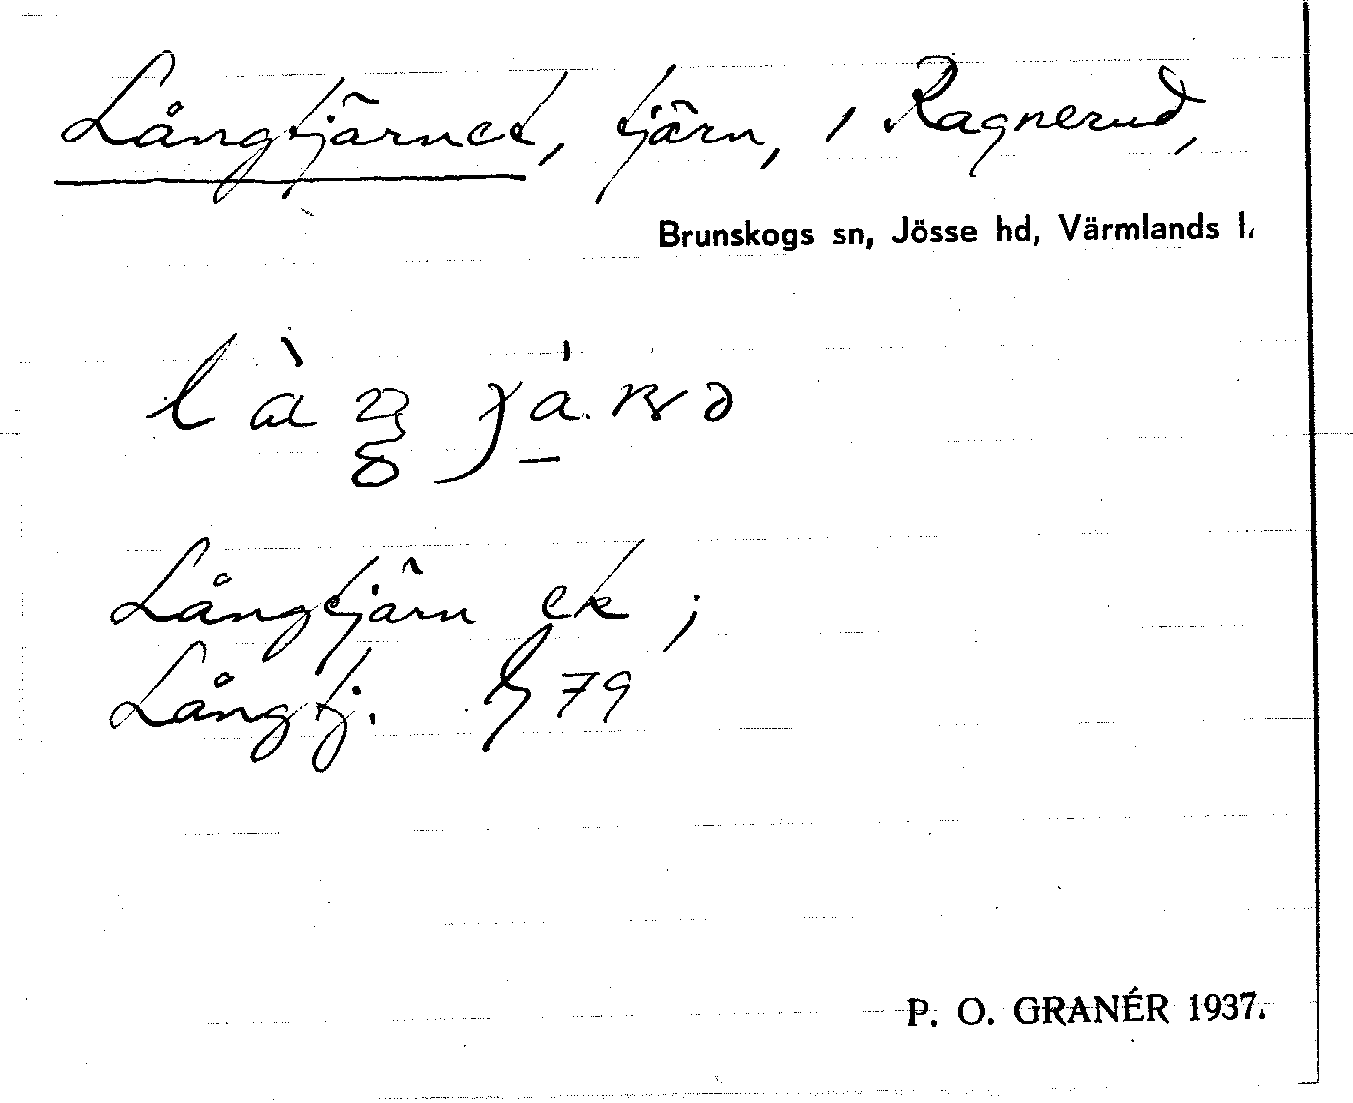 Långtjärnet, tjärn, i Ragnerud,
Brunskogs sn, Jösse hd, Värmlands l.
Långtjärn ek;
Långtj. 79
P. O. GRANÉR 1937.